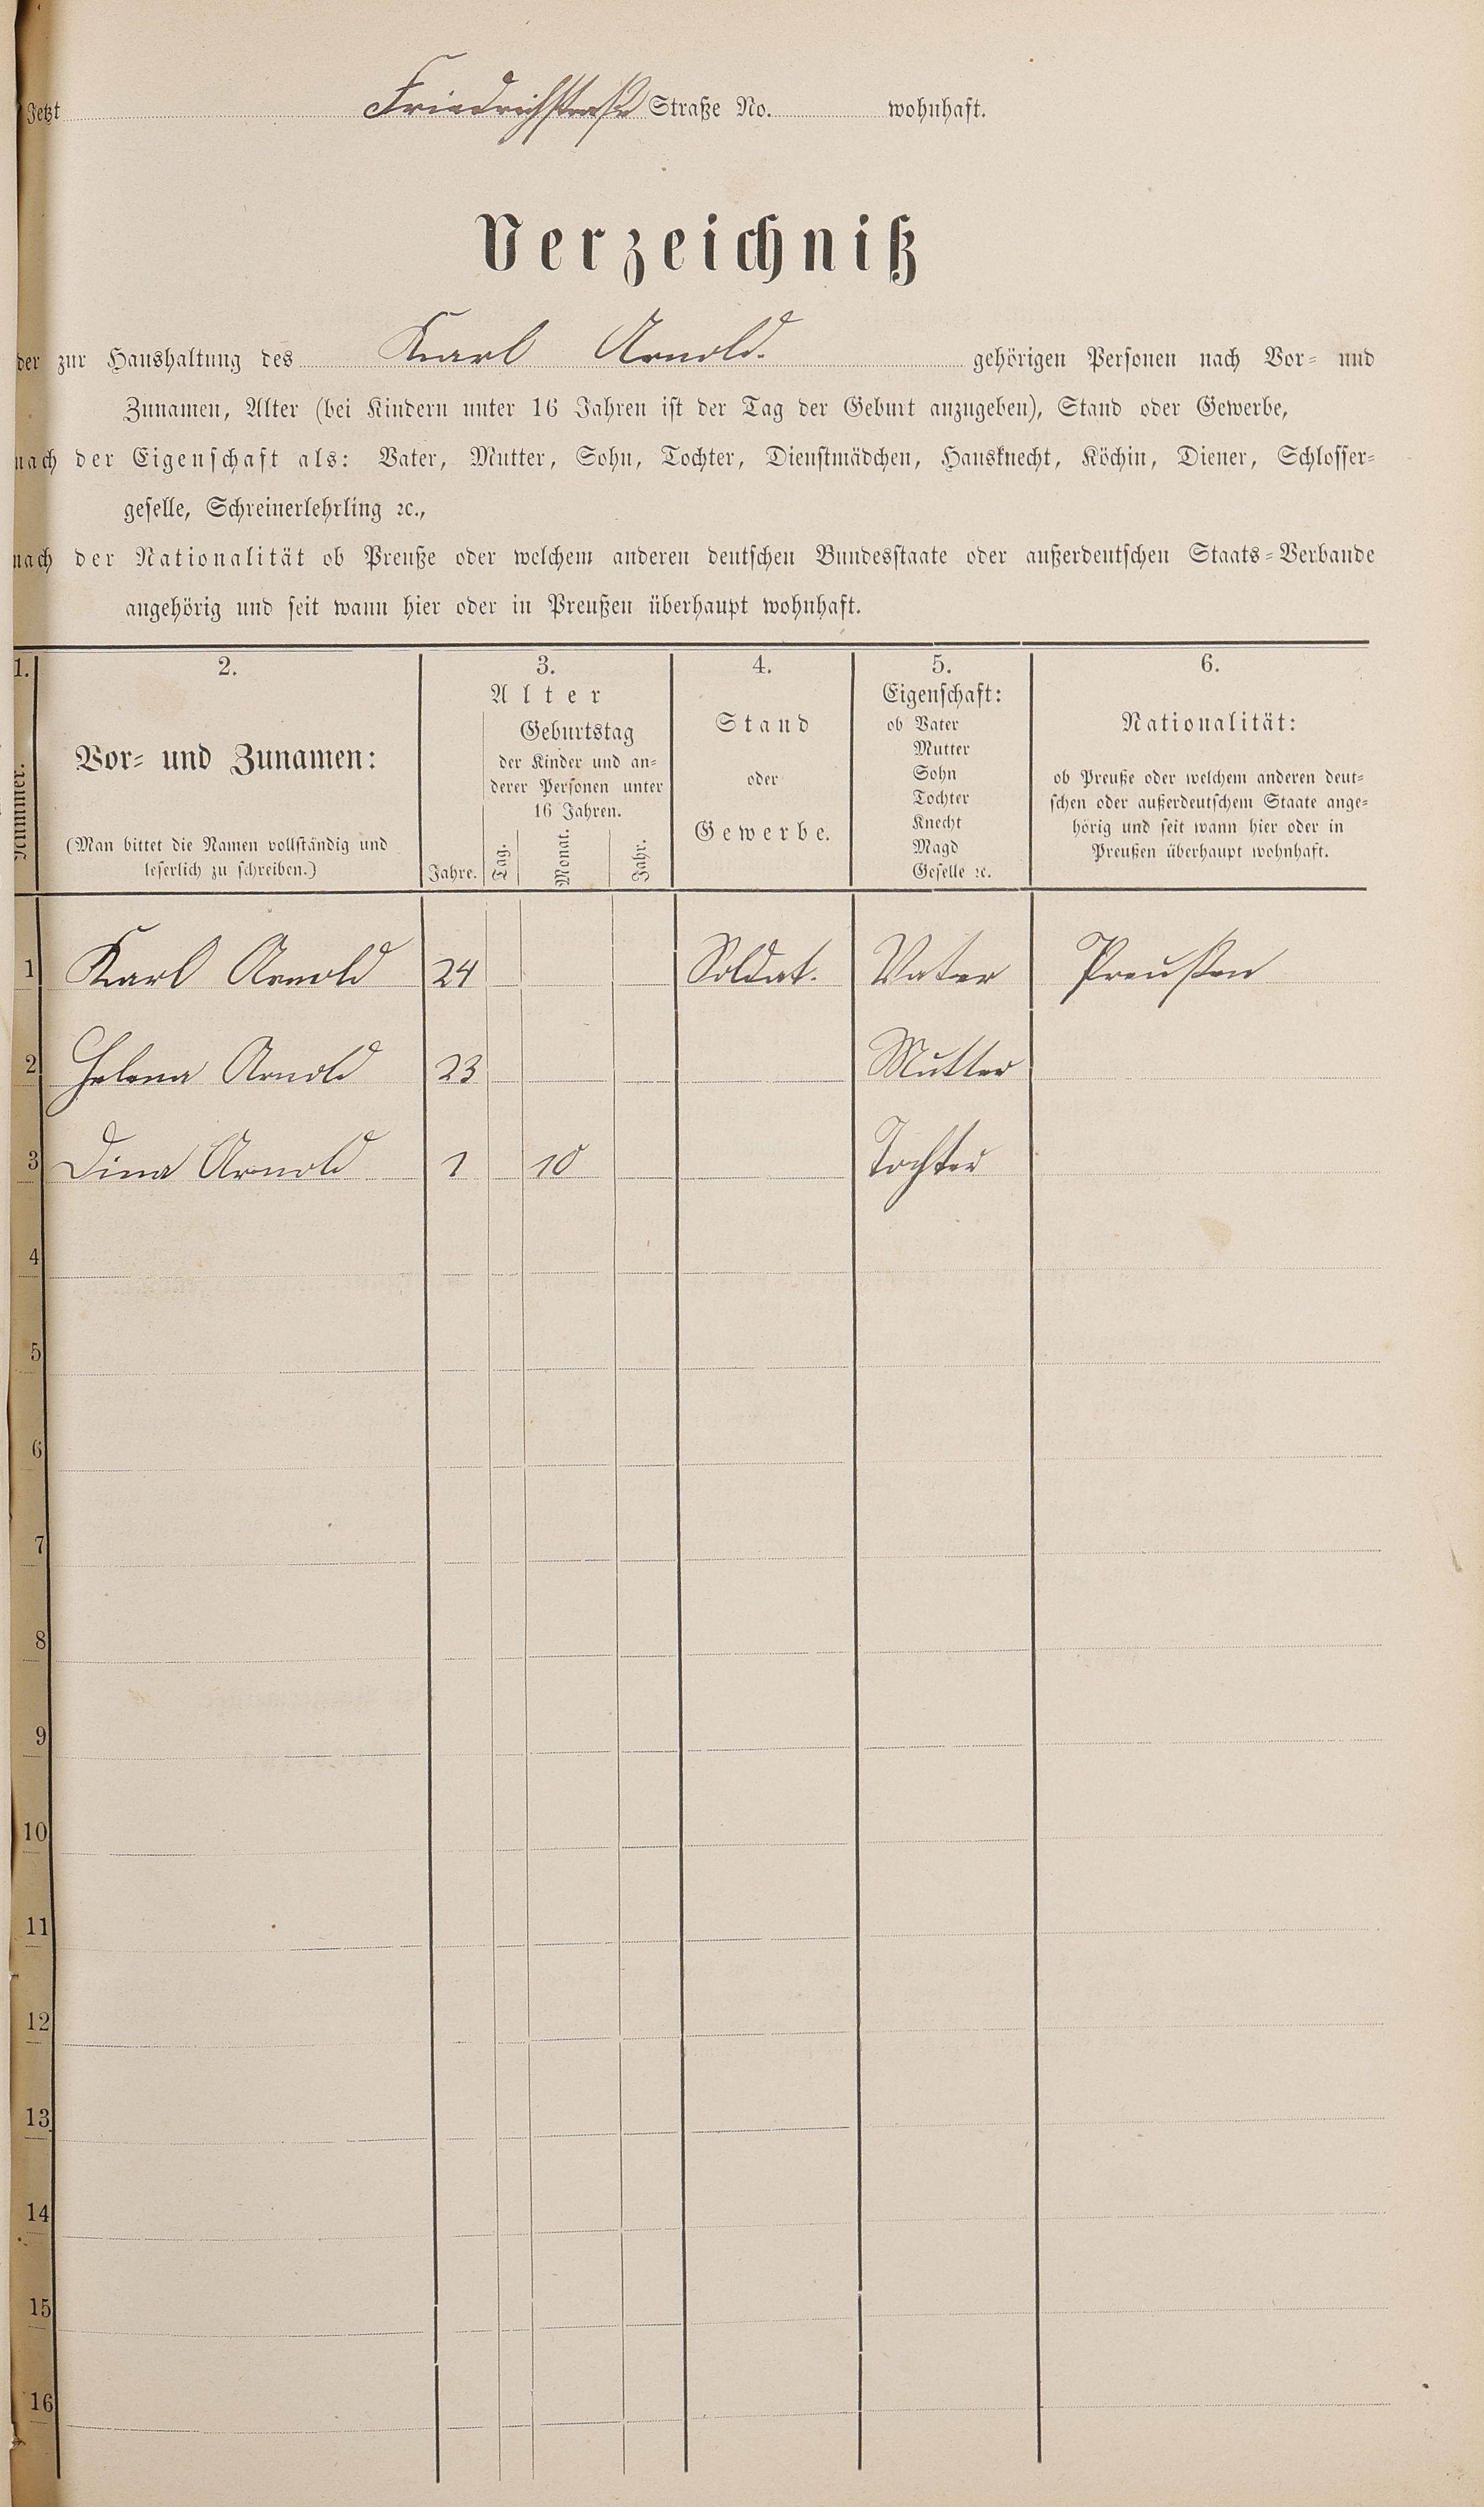 Jetzt Friedrichstraße Straße No. wohnhaft.
Verzeichniß
der zur Haushaltung des Karl Arnold. gehörigen Personen nach Vor- und
Zunamen, Alter (bei Kindern unter 16 Jahren ist der Tag der Geburt anzugeben), Stand oder Gewerbe,
nach der Eigenschaft als: Vater, Mutter, Sohn, Tochter, Dienstmädchen, Hausknecht, Köchin, Diener, Schlosser-
geselle, Schreinerlehrling ꝛc.,
nach der Nationalität ob Preuße oder welchem anderen deutschen Bundesstaate oder außerdeutschen Staats-Verbande
angehörig und seit wann hier oder in Preußen überhaupt wohnhaft.
1. 2. 3. 4. 5. 6.
Nummer.
Vor- und Zunamen:
(Man bittet die Namen vollständig und
leserlich zu schreiben.)
Alter
Geburtstag
der Kinder und an-
derer Personen unter
16 Jahren.
Jahre. Tag. Monat. Jahr.
Stand
oder
Gewerbe.
Eigenschaft:
ob Vater
Mutter
Sohn
Tochter
Knecht
Magd
Geselle ꝛc.
Nationalität:
ob Preuße oder welchem anderen deut-
schen oder außerdeutschem Staate ange-
hörig und seit wann hier oder in
Preußen überhaupt wohnhaft.
1 Karl Arnold 24 Soldat. Vater Preußen
2 Helena Arnold 23 Mutter
3 Dina Arnold 1 10 Tochter
4
5
6
7
8
9
10
11
12
13
14
15
16